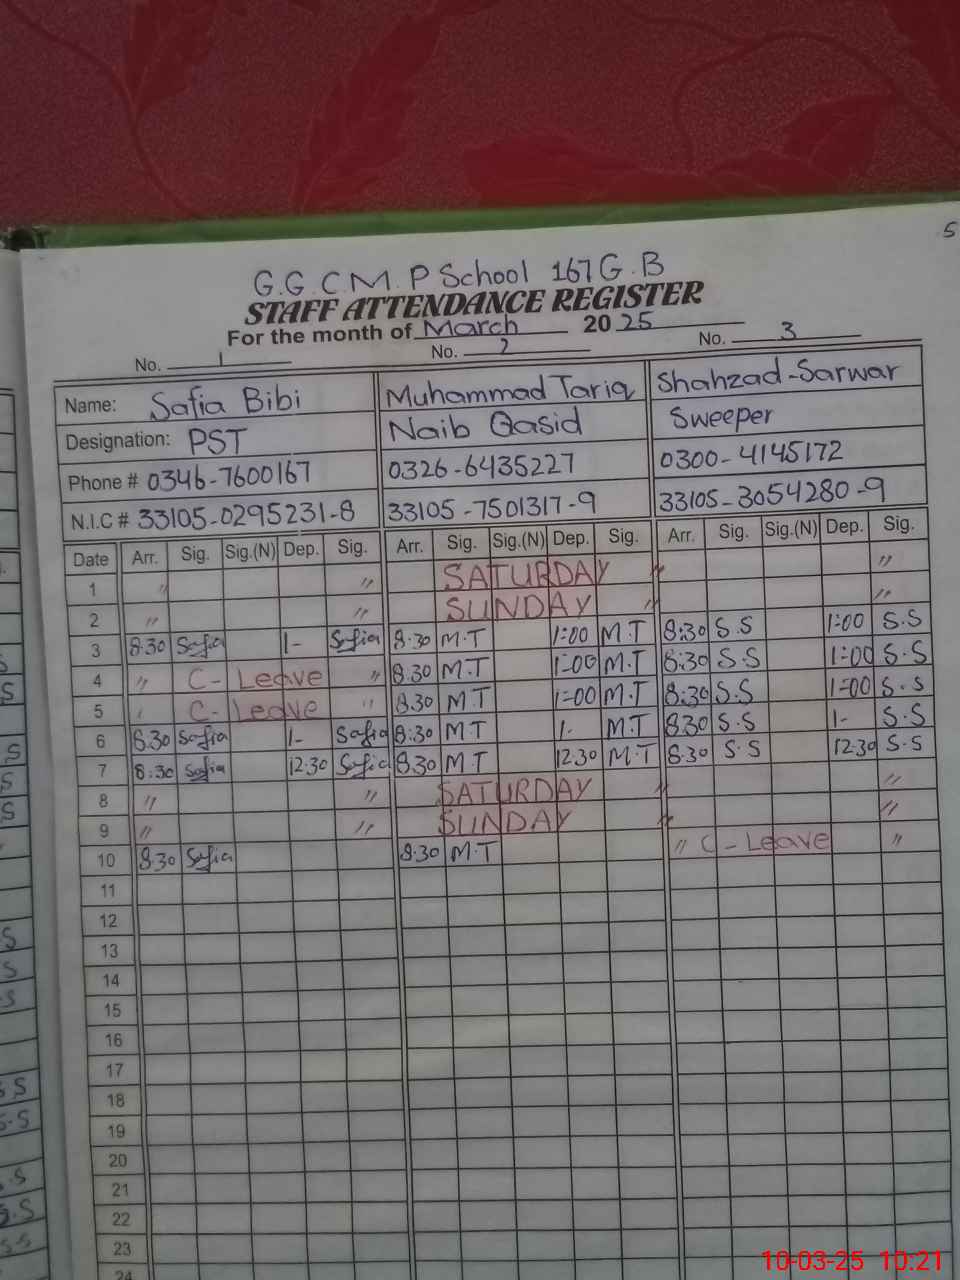 5
G.G.C.M.P School 167 G.B
STAFF ATTENDANCE REGISTER
For the month of March 2025
No. 1 No. 2 No. 3
Name: Safia Bibi Muhammad Tariq Shahzad-Sarwar
Designation: PST Naib Qasid Sweeper
Phone # 0346-7600167 0326-6435227 0300-4145172
N.I.C # 33105-0295231-8 33105-7501317-9 33105-3054280-9
Date Arr. Sig. Sig.(N) Dep. Sig. Arr. Sig. Sig.(N) Dep. Sig. Arr. Sig. Sig.(N) Dep. Sig.
1 " " SATURDAY " "
2 " " SUNDAY " "
3 8:30 Safia 1- Safia 8:30 M.T 1:00 M.T 8:30 S.S 1:00 S.S
4 " C- Leave " 8:30 M.T 1:00 M.T 8:30 S.S 1:00 S.S
5 " C- Leave " 8:30 M.T 1:00 M.T 8:30 S.S 1:00 S.S
6 8:30 Safia 1- Safia 8:30 M.T 1- M.T 8:30 S.S 1- S.S
7 8:30 Safia 12:30 Safia 8:30 M.T 12:30 M.T 8:30 S.S 12:30 S.S
8 " " SATURDAY " "
9 " " SUNDAY " "
10 8:30 Safia 8:30 M.T " C- Leave "
11
12
13
14
15
16
17
18
19
20
21
22
23
24
10-03-25 10:21